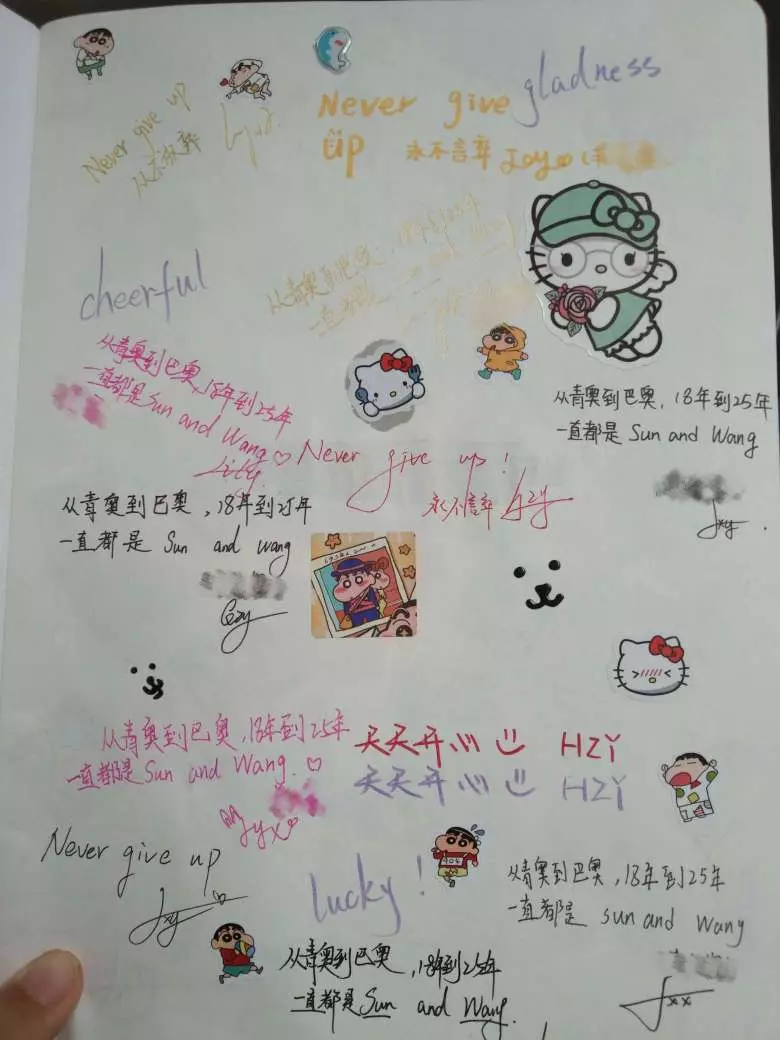 Never give up
从不放弃
gladness
Never give
up 永不言弃 Joy
cheerful
从青奥到巴奥,18年到25年
一直都是
从青奥到巴奥,18年到25年
一直都是 Sun and Wang
Lity
从青奥到巴奥,18年到25年
一直都是 Sun and Wang
Jxy
Never give up!
永不言弃 Gzy
从青奥到巴奥,18年到25年
一直都是 Sun and wang
Gzy
从青奥到巴奥,18年到25年
一直都是 Sun and Wang.
Jyx
天天开心 HZY
天天开心 HZY
Never give up
Jxy
lucky!
从青奥到巴奥,18年到25年
一直都是 sun and Wang
Jxx
从青奥到巴奥,18年到25年
一直都是 Sun and Wang.